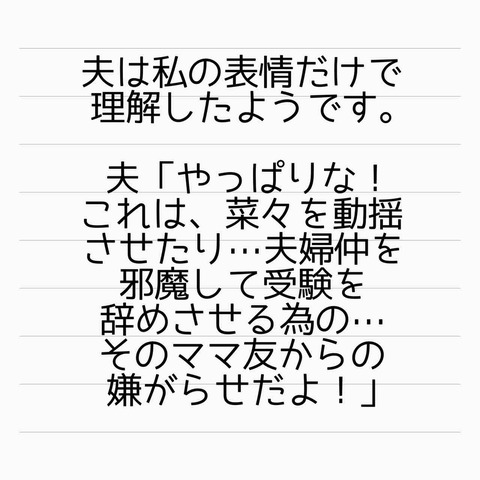 夫は私の表情だけで
理解したようです。
夫「やっぱりな！
これは、菜々を動揺
させたり…夫婦仲を
邪魔して受験を
辞めさせる為の…
そのママ友からの
嫌がらせだよ！」